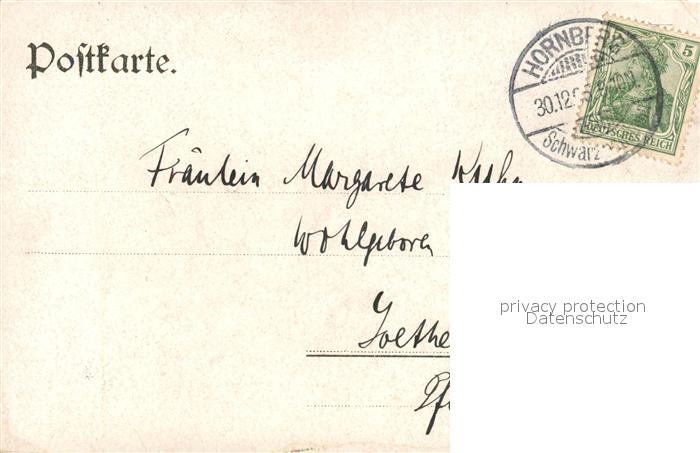 Postkarte.
HORNBERG
30.12.
Schwarz
5
DEUTSCHES REICH
Fräulein Margarete
Wohlgeboren
Goethe
Pf
privacy protection
Datenschutz